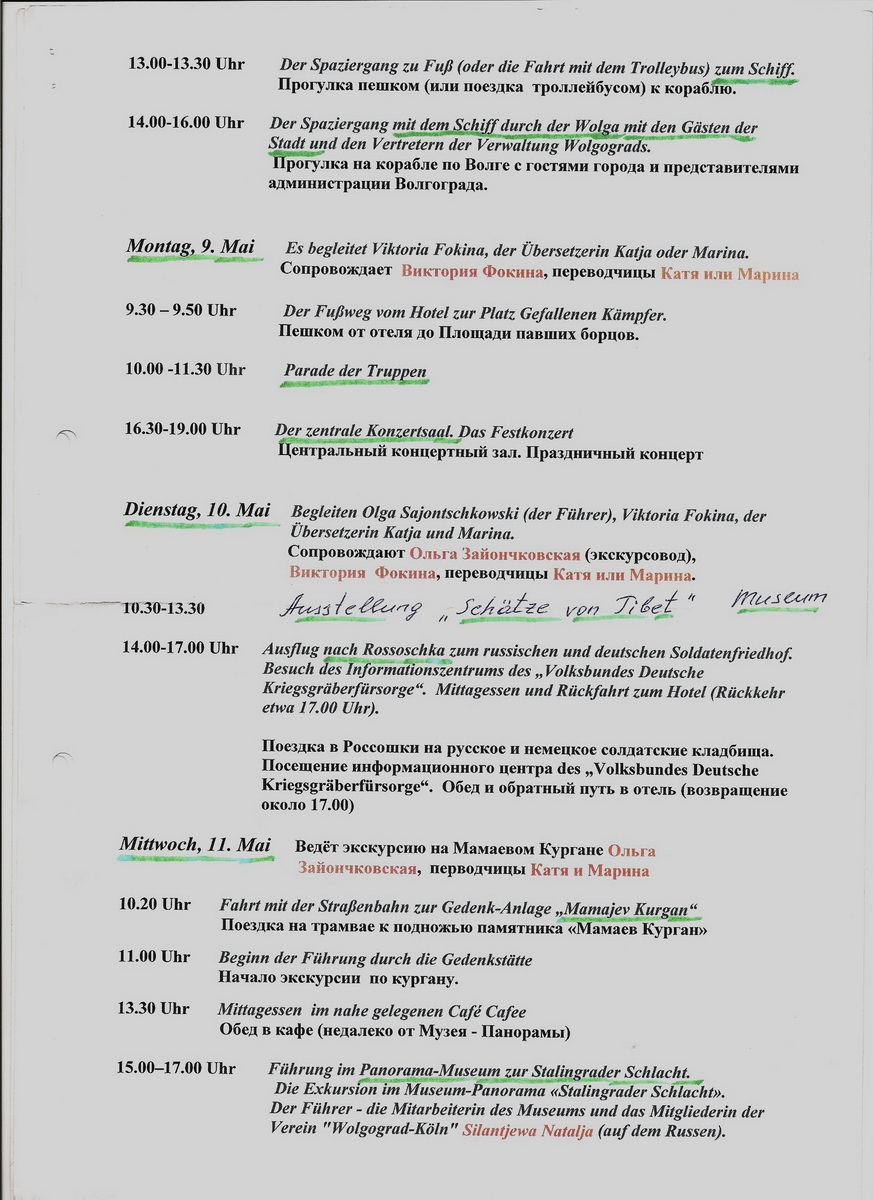 13.00-13.30 Uhr Der Spaziergang zu Fuß (oder die Fahrt mit dem Trolleybus) zum Schiff.
Прогулка пешком (или поездка троллейбусом) к кораблю.
14.00-16.00 Uhr Der Spaziergang mit dem Schiff durch der Wolga mit den Gästen der
Stadt und den Vertretern der Verwaltung Wolgograds.
Прогулка на корабле по Волге с гостями города и представителями
администрации Волгограда.
Montag, 9. Mai Es begleitet Viktoria Fokina, der Übersetzerin Katja oder Marina.
Сопровождает Виктория Фокина, переводчицы Катя или Марина
9.30 – 9.50 Uhr Der Fußweg vom Hotel zur Platz Gefallenen Kämpfer.
Пешком от отеля до Площади павших борцов.
10.00 -11.30 Uhr Parade der Truppen
16.30-19.00 Uhr Der zentrale Konzertsaal. Das Festkonzert
Центральный концертный зал. Праздничный концерт
Dienstag, 10. Mai Begleiten Olga Sajontschkowski (der Führer), Viktoria Fokina, der
Übersetzerin Katja und Marina.
Сопровождают Ольга Зайончковская (экскурсовод),
Виктория Фокина, переводчицы Катя или Марина.
10.30-13.30 Ausstellung „Schätze von Tibet" Museum
14.00-17.00 Uhr Ausflug nach Rossoschka zum russischen und deutschen Soldatenfriedhof.
Besuch des Informationszentrums des „Volksbundes Deutsche
Kriegsgräberfürsorge“. Mittagessen und Rückfahrt zum Hotel (Rückkehr
etwa 17.00 Uhr).
Поездка в Россошки на русское и немецкое солдатские кладбища.
Посещение информационного центра des „Volksbundes Deutsche
Kriegsgräberfürsorge“. Обед и обратный путь в отель (возвращение
около 17.00)
Mittwoch, 11. Mai Ведёт экскурсию на Мамаевом Кургане Ольга
Зайончковская, перводчицы Катя и Марина
10.20 Uhr Fahrt mit der Straßenbahn zur Gedenk-Anlage „Mamajev Kurgan“
Поездка на трамвае к подножью памятника «Мамаев Курган»
11.00 Uhr Beginn der Führung durch die Gedenkstätte
Начало экскурсии по кургану.
13.30 Uhr Mittagessen im nahe gelegenen Café Cafee
Обед в кафе (недалеко от Музея - Панорамы)
15.00–17.00 Uhr Führung im Panorama-Museum zur Stalingrader Schlacht.
Die Exkursion im Museum-Panorama «Stalingrader Schlacht».
Der Führer - die Mitarbeiterin des Museums und das Mitgliederin der
Verein "Wolgograd-Köln" Silantjewa Natalja (auf dem Russen).